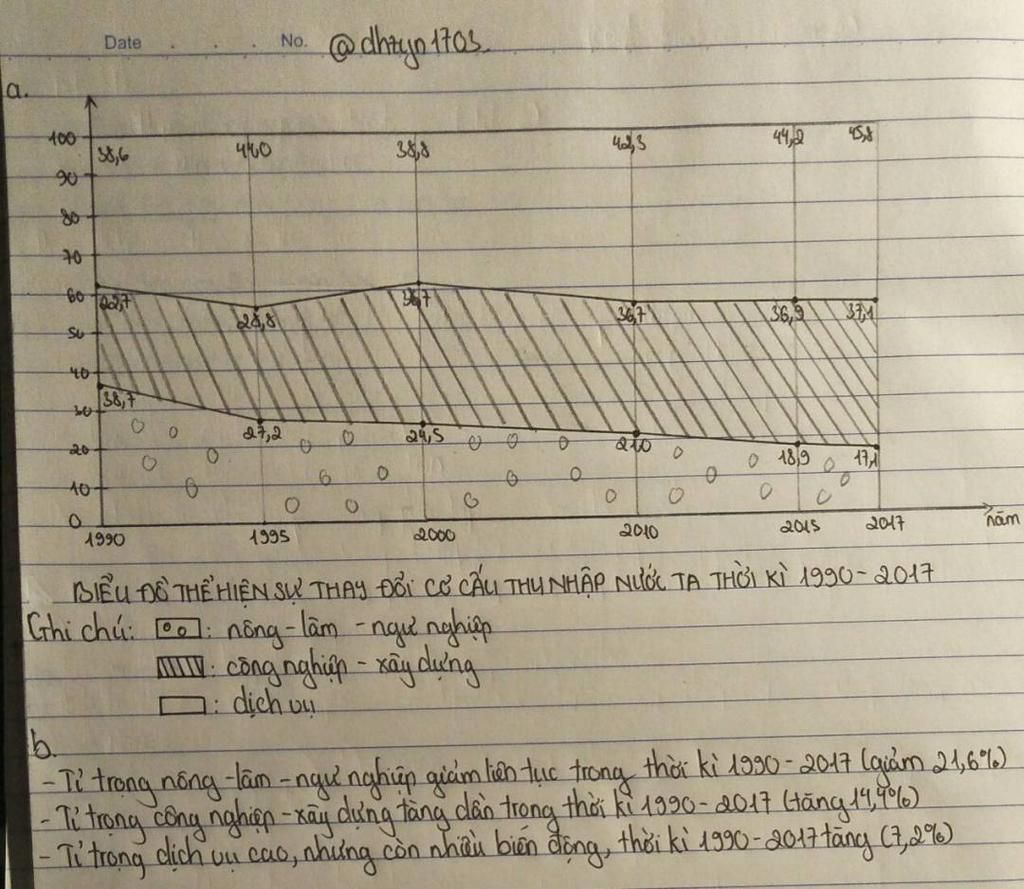 Date . . . No. @dhzyn1703
a.
100
38,6 44,0 38,8 42,3 44,2 45,8
90
80
70
60
22,7 28,8 36,7 36,7 36,9 37,1
50
40
38,7 27,2 24,5 21,0 18,9 17,1
30
20
10
0
1990 1995 2000 2010 2015 2017 năm
BIỂU ĐỒ THỂ HIỆN SỰ THAY ĐỔI CƠ CẤU THU NHẬP NƯỚC TA THỜI KÌ 1990 - 2017
Ghi chú: : nông - lâm - ngư nghiệp
: công nghiệp - xây dựng
: dịch vụ
b.
- Tỉ trọng nông - lâm - ngư nghiệp giảm liên tục trong thời kì 1990 - 2017 (giảm 21,6%)
- Tỉ trọng công nghiệp - xây dựng tăng dần trong thời kì 1990 - 2017 (tăng 14,4%)
- Tỉ trọng dịch vụ cao, nhưng còn nhiều biến động, thời kì 1990 - 2017 tăng (7,2%)